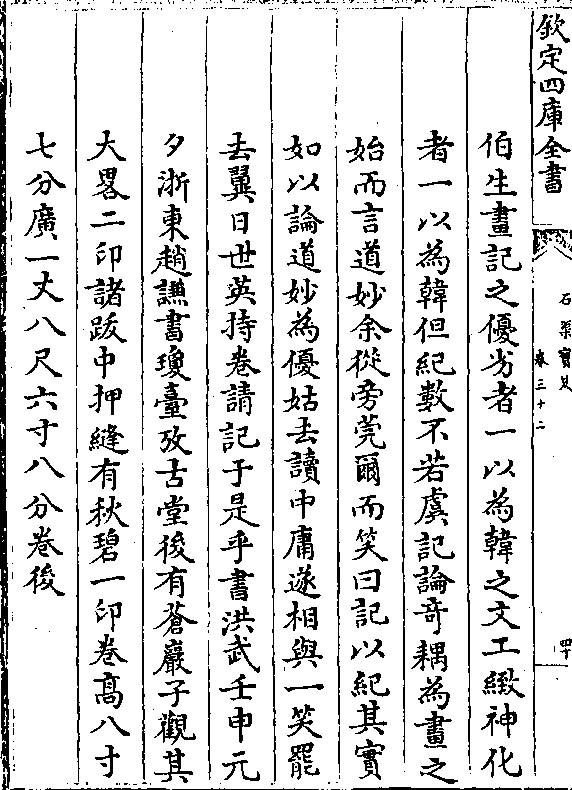 欽定四庫全書
石渠寳笈
卷三十二
四十
伯生畫記之優劣者一以為韓之文工緻神化
者一以為韓但紀數不若虞記論竒耦為畫之
始而言道妙余從旁莞爾而笑曰記以紀其實
如以論道妙為優姑去讀中庸遂相與一笑罷
去翼日世英持卷請記于是乎書洪武壬申元
夕浙東趙謙書瓊臺攷古堂後有蒼巖子觀其
大畧二印諸跋中押縫有秋碧一印卷髙八寸
七分廣一丈八尺六寸八分卷後